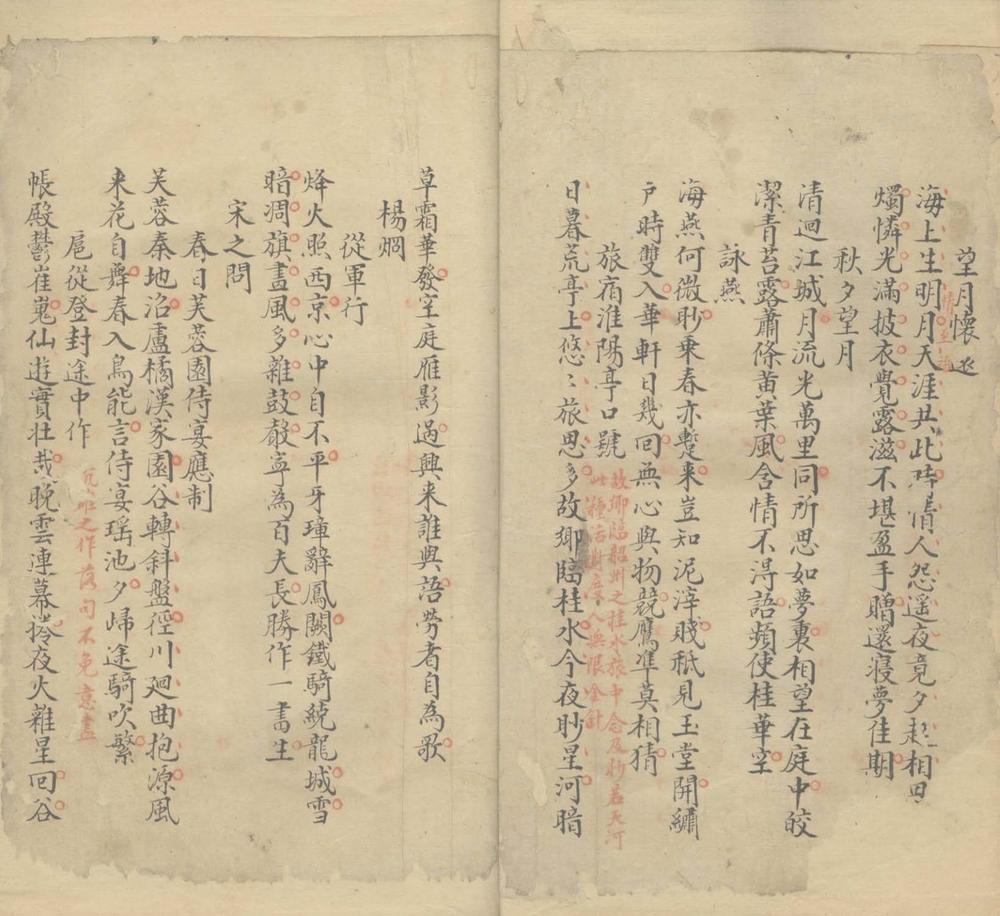 望月懷遠
海上生明月天涯共此時情人怨遥夜竟夕起相思
燭憐光滿披衣覺露滋不堪盈手贈還寢夢佳期
秋夕望月
清迥江城月流光萬里同所思如夢裏相望在庭中皎
潔青苔露蕭條黄葉風含情不淂語頻使桂華空
詠燕
海燕何微眇乗春亦蹔来豈知泥滓賤秪見玉堂開繡
戶時雙入華軒日幾回無心與物競鷹凖莫相猜
旅宿淮陽亭口號
故鄉臨韶州之桂水旅中念及
日暮荒亭上悠〻旅思多故鄉臨桂水今夜眇星河暗
草霜華發空庭雁影過興来誰與語勞者自為歌
楊烱
從軍行
烽火照西京心中自不平牙璋辭鳳闕鐵騎繞龍城雪
暗凋旗畫風多雜鼓聲寧為百夫長勝作一書生
宋之問
春日芙蓉園侍宴應制
芙蓉秦地沼盧橘漢家園谷轉斜盤徑川廻曲抱源風
来花自舞春入鳥能言侍宴瑶池夕歸途騎吹繁
扈從登封途中作
之作落句不免意盡
帳殿鬱崔嵬仙遊實壯哉晚雲連幕捲夜火雜星回谷